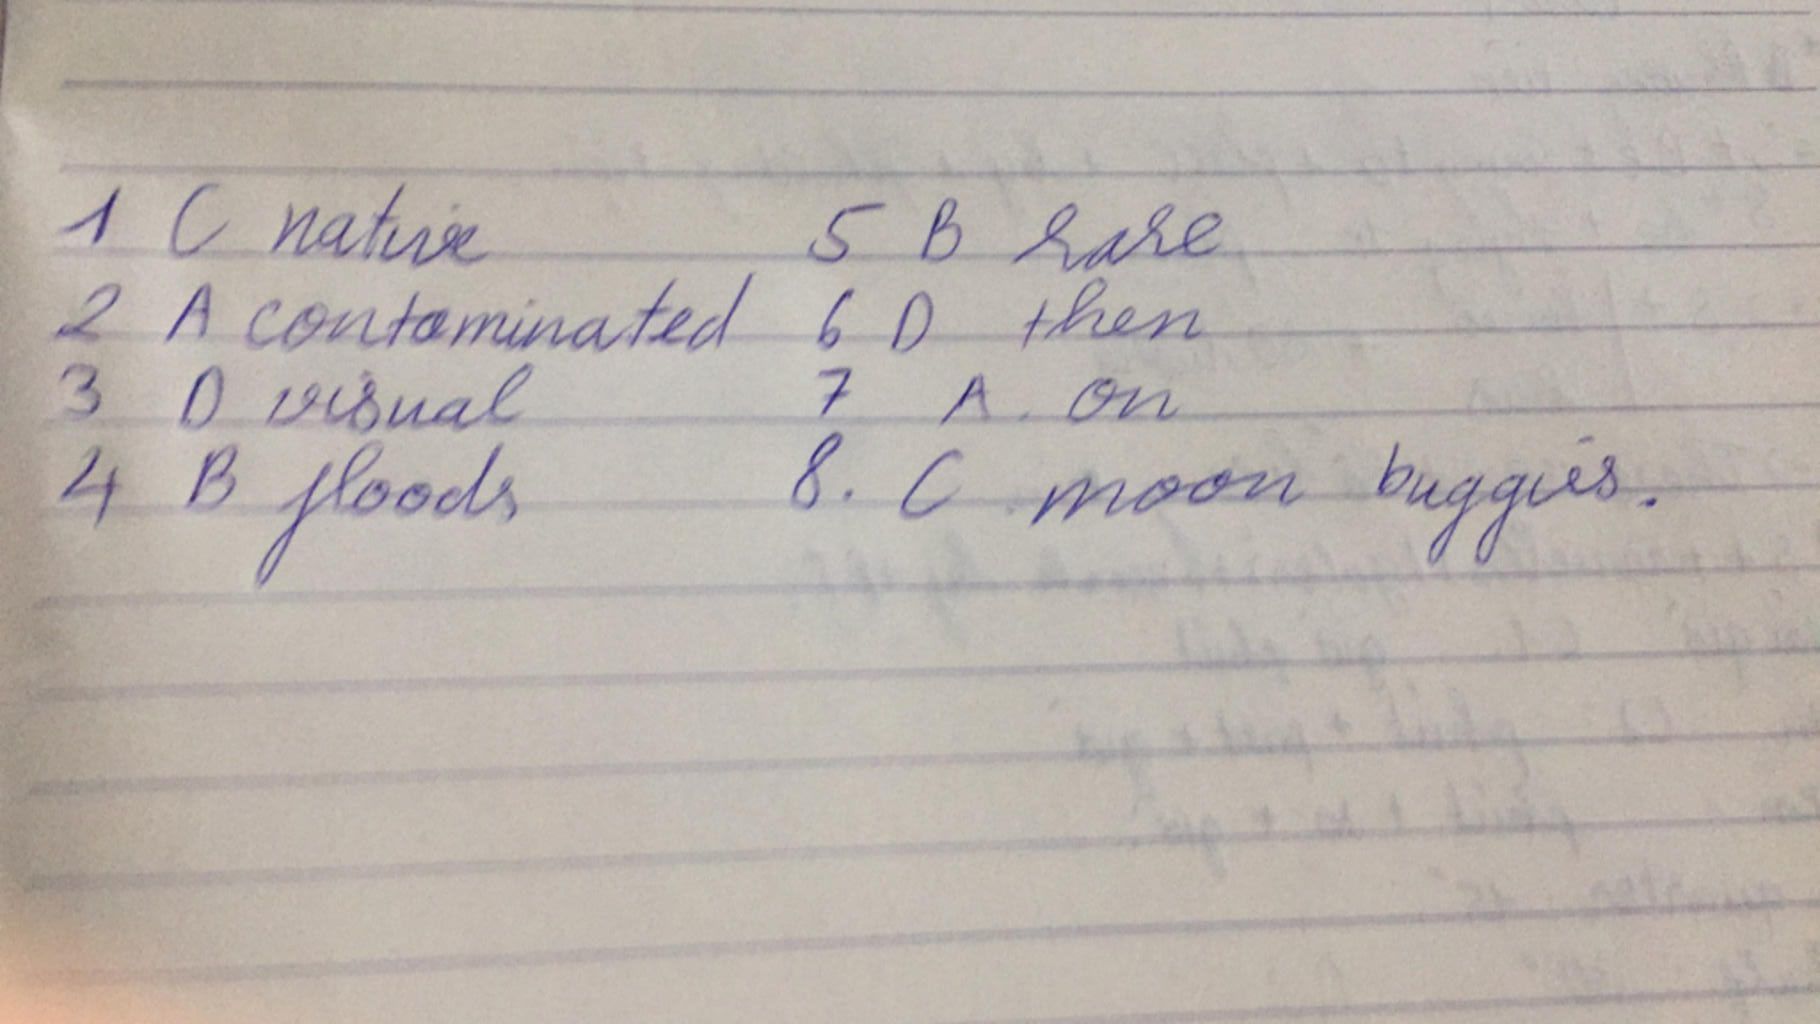 1 C native
2 A contaminated
3 D visual
4 B floods
5 B rare
6 D then
7 A. on
8. C moon buggies.